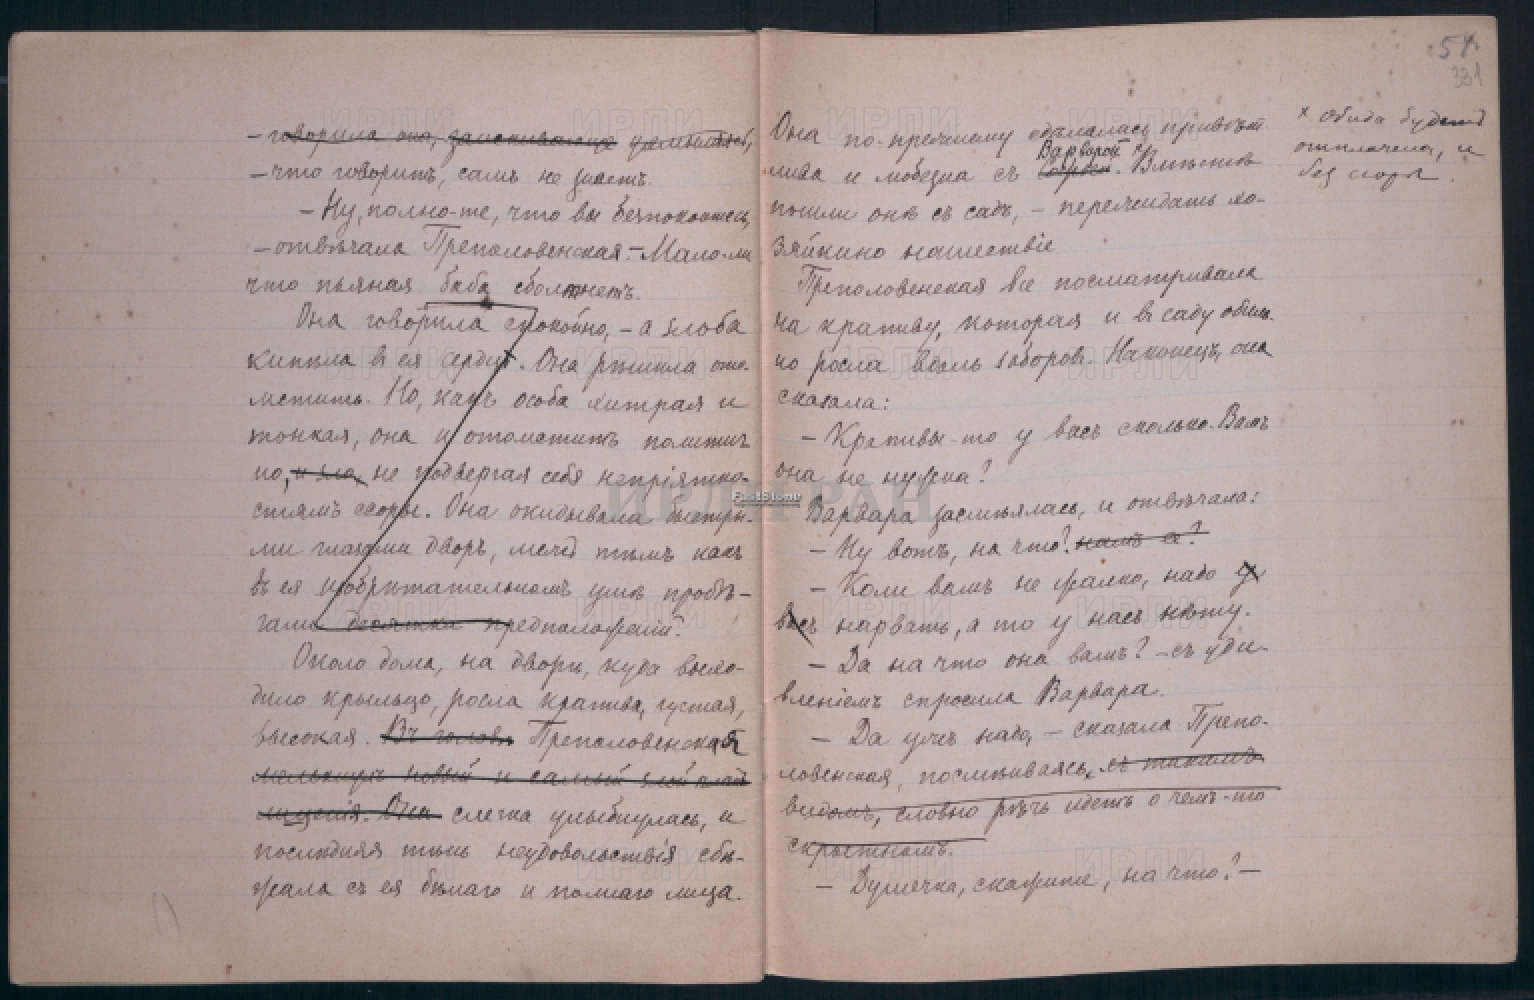 – говорила она, заискивающе улыбаясь,
– что говоритъ, самъ не знаетъ.
– Ну, полно-те, что вы безпокоитесь,
– отвѣчала Преполовенская. – Мало-ли
что пьяная баба сболтнетъ.
Она говорила спокойно, – а злоба
кипѣла въ ея сердцѣ. Она рѣшила ото-
мстить. Но, какъ особа хитрая и
тонкая, она и отомститъ политич
но, и зло, не подвергая себя непріятно-
стямъ ссоры. Она окидывала быстры-
ми глазами дворъ, межъ тѣмъ какъ
въ ея изобрѣтательномъ умѣ пробѣ-
гали десятки предположеній.
Около дома, на дворѣ, куда выхо-
дило крыльцо, росла крапива, густая,
высокая. Въ головѣ Преполовенская
мелькнулъ новый и самый злой планъ
мщенія. Она слегка улыбнулась, и
послѣдняя тѣнь неудовольствія сбѣ-
жала съ ея бѣлаго и полнаго лица.
51.
331
Она по-прежнему сдѣлалась привѣт-
лива и любезна съ Варварой ×. Вмѣстѣ
пошли онѣ въ садъ, – пережидать хо-
зяйкино нашествіе
Преполовенская все посматривала
на крапиву, которая и въ саду обиль-
но росла вдоль заборовъ. Наконецъ, она
сказала:
– Крапивы-то у васъ сколько. Вамъ
она не нужна?
Варвара засмѣялась, и отвѣчала:
– Ну вотъ, на что? намъ а?
– Коли вамъ не жалко, надо у
васъ нарвать, а то у насъ нѣту.
– Да на что она вамъ? – съ уди-
вленіемъ спросила Варвара.
– Да ужъ надо, – сказала Препо-
ловенская, посмѣиваясь, съ такимъ
видомъ, словно рѣчь идетъ о чемъ-то
скромномъ.
– Душечка, скажите, на что? –
× Обида будетъ
отплачена, и
безъ ссоры.
ИРЛИ РАН
FastStone